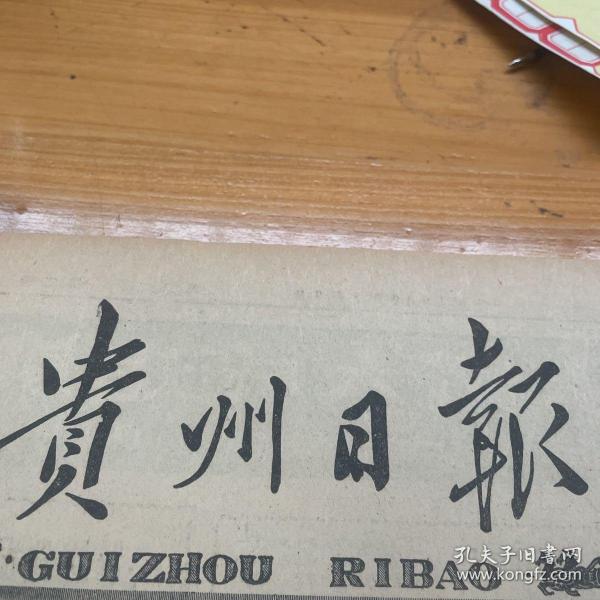 貴州日報
·GUIZHOU RIBAO
孔夫子旧书网
www.kongfz.com